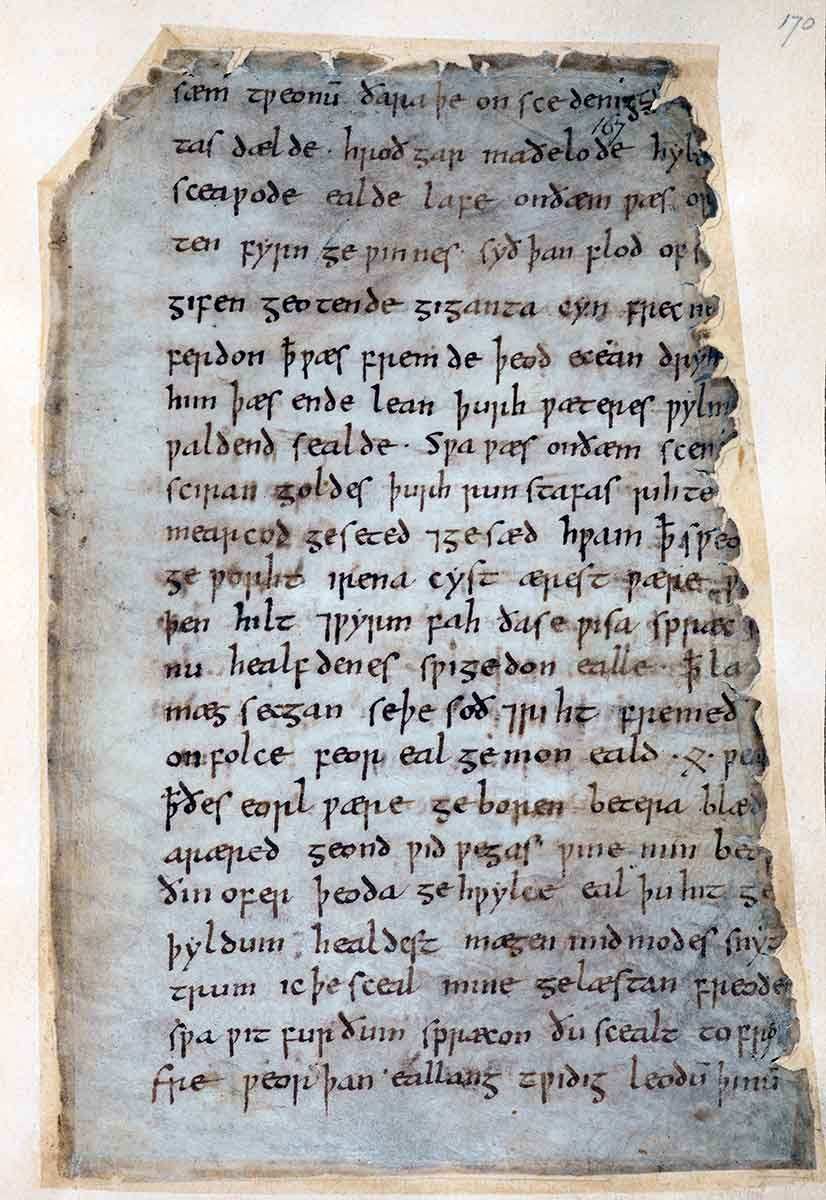 170
sæm tƿeonū ðara þe on scedenigg
167
tas dælde · hroð gar maðelode hyl
sceaƿode ealde lafe onðæm ƿæs or
ten fyrn ge ƿinnes · syð þan flod of
gifen geotende giganta cyn frecn
ferdon ꝥ ƿæs fremde þeod ecean dryh
him þæs ende lean þurh ƿæteres ƿylm
ƿaldend sealde · Sƿa ƿæs onðæm scen
sciran goldes þurh run stafas rihte
mearcod geseted ⁊gesæd hƿam ꝥ sƿeo
ge ƿorht irena cyst ærest ƿære
þen hilt ⁊ƿyrm fah ðase ƿisa spræc
nu healfdenes sƿigedon ealle · ꝥ la
mæg secgan seþe soð ⁊riht fremeð
on folce feor eal ge mon eald · ᛟ · ƿea
ꝥ ðes eorl ƿære ge boren betera blæd
aræred geond ƿid ƿegas ƿine min
ðin ofer þeoda ge hƿylce eal þu hit ge
þyldum healdest mægen mid modes snyt
trum ic þe sceal mine gelæstan freode
sƿa ƿit furðum spræcon ðu scealt to fro
fre ƿeorþan eallang tƿidig leodū þinū